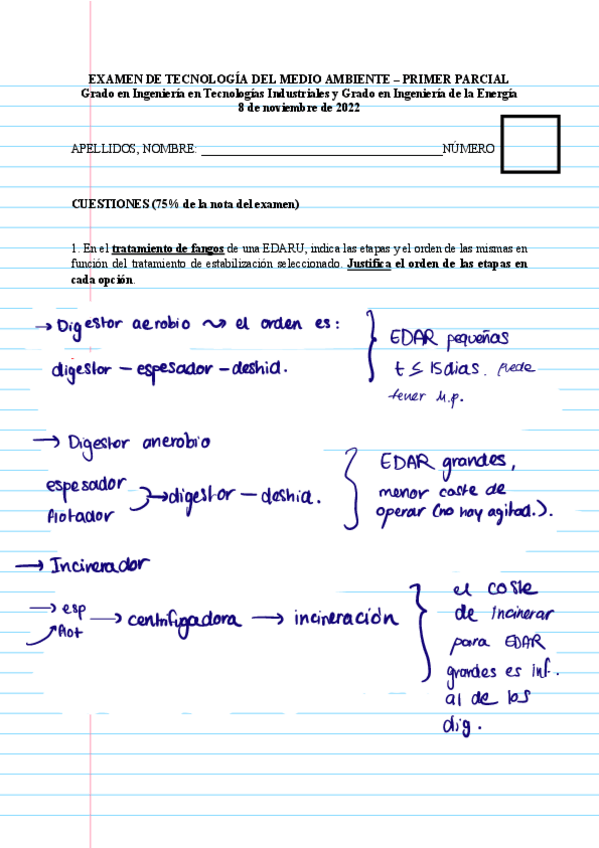 EXAMEN DE TECNOLOGÍA DEL MEDIO AMBIENTE – PRIMER PARCIAL
Grado en Ingeniería en Tecnologías Industriales y Grado en Ingeniería de la Energía
8 de noviembre de 2022
APELLIDOS, NOMBRE: ________________________________________NÚMERO
CUESTIONES (75% de la nota del examen)
1. En el tratamiento de fangos de una EDARU, indica las etapas y el orden de las mismas en
función del tratamiento de estabilización seleccionado. Justifica el orden de las etapas en
cada opción.
→ Digestor aerobio ⇝ el orden es:
digestor – espesador – deshid.
EDAR pequeñas
t ≤ 15 dias. puede
tener M.p.
→ Digestor anerobio
espesador
flotador
→ digestor – deshid.
EDAR grandes,
menor coste de
operar (no hay agitad.).
→ Incinerador
→ esp
↗ flot
→ centrifugadora → incineración
el coste
de incinerar
para EDAR
grandes es inf.
al de los
dig.